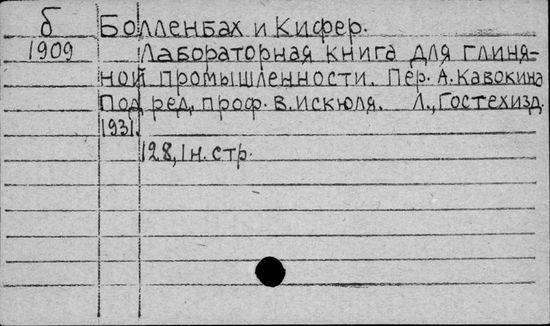 б Болленбах и Кифер.
1909 Лабораторная книга для глиня-
ной промышленности. Пер. А. Кавокина
Под ред. проф. В. Искюля. Л., Гостехизд.
1931.
128, 1 н. стр.